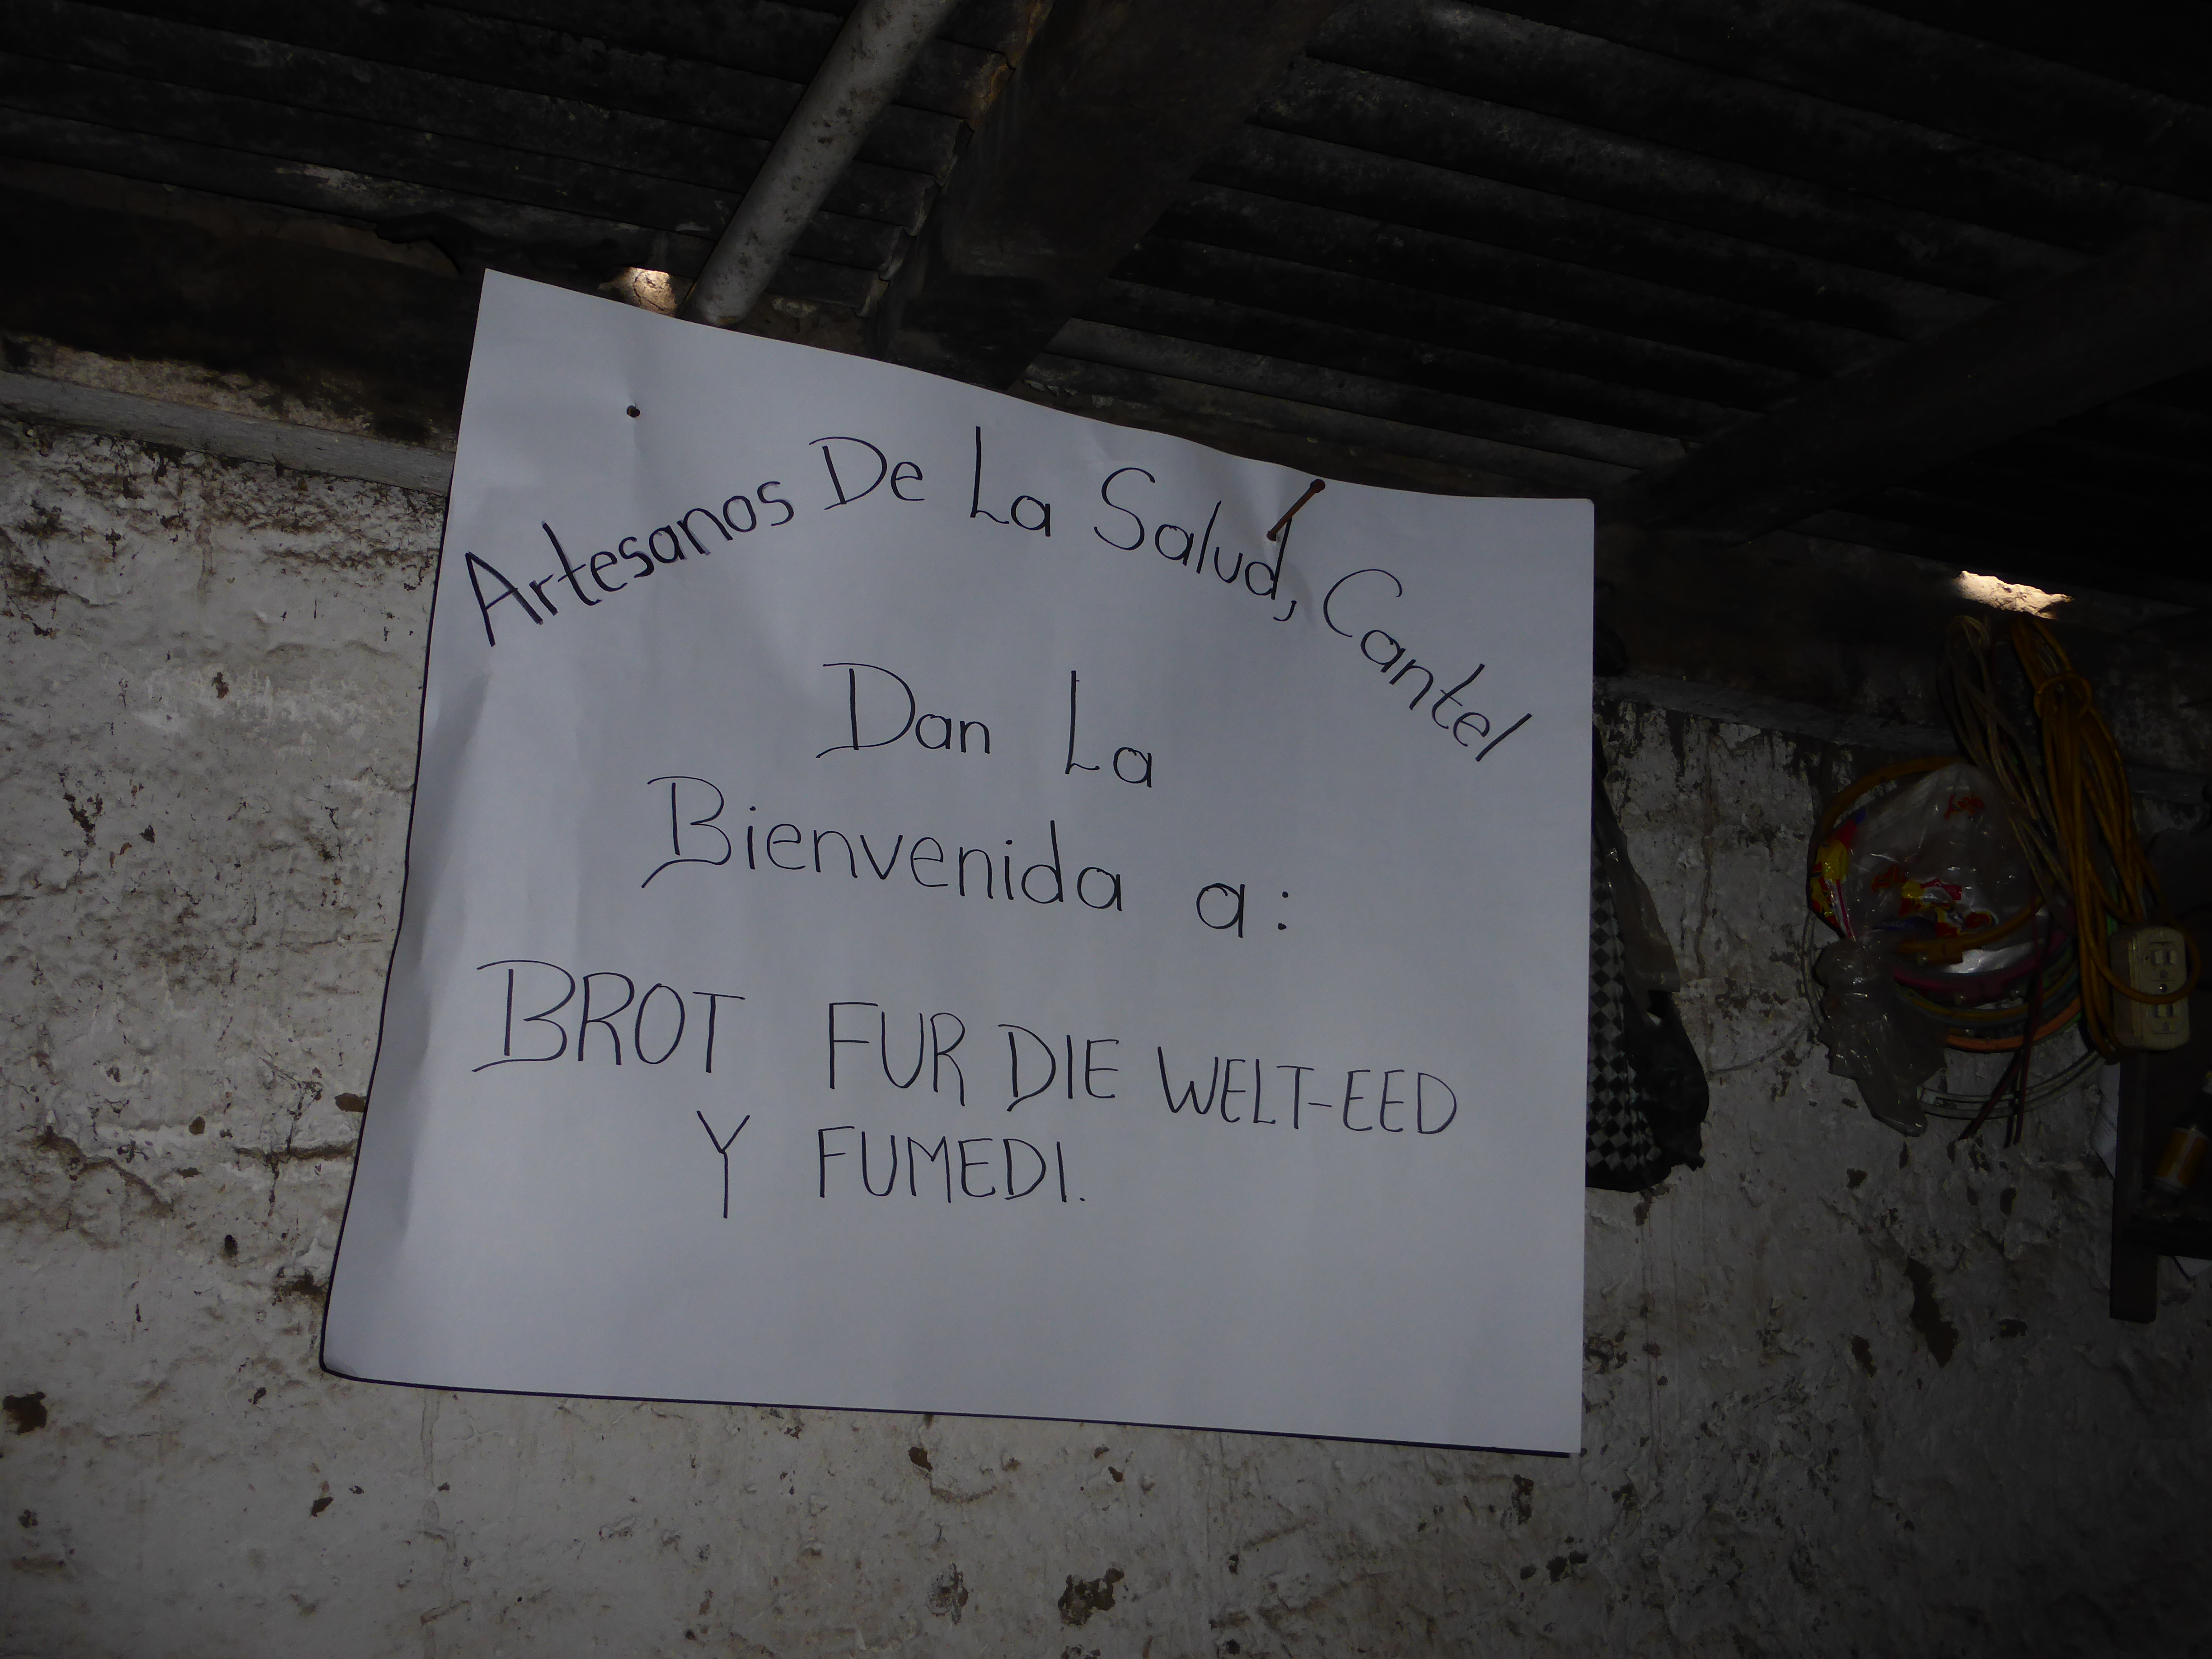 Artesanos De La Salud, Cantel
Dan La
Bienvenida a:
BROT FUR DIE WELT-EED
Y FUMEDI.